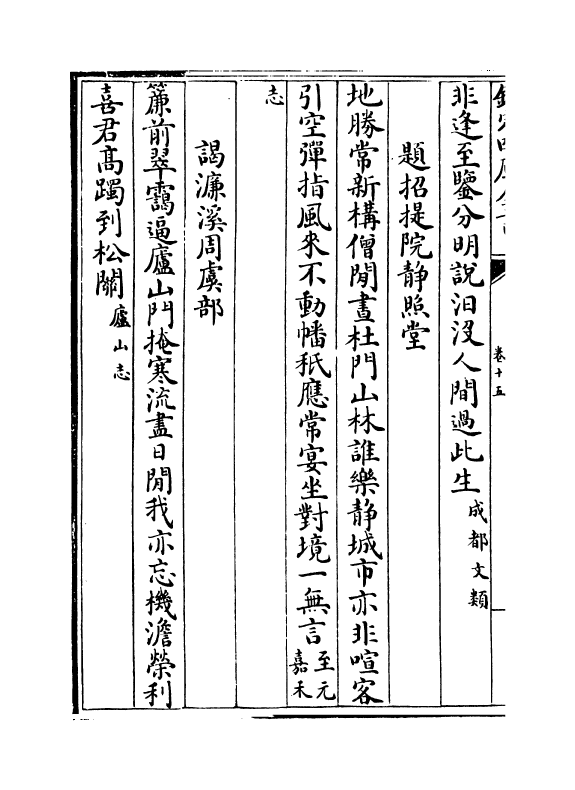 欽定四庫全書
卷十五
非逢至鑒分明說汨沒人間過此生成都文類
題招提院靜照堂
地勝常新構僧閒晝杜門山林誰樂靜城市亦非喧客
引空彈指風來不動幡秪應常宴坐對境一無言至元嘉禾
志
謁濂溪周虞部
簾前翠靄逼廬山門掩寒流盡日閒我亦忘機澹榮利
喜君髙躅到松關廬山志